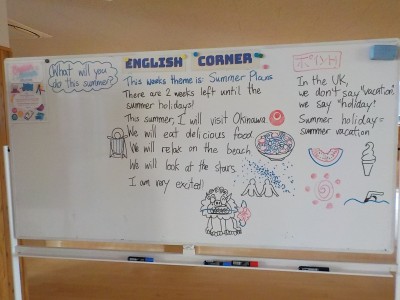 What will you
do this summer?
ENGLISH CORNER
This weeks theme is: Summer Plans
There are 2 weeks left until the
summer holidays!
This summer, I will visit Okinawa
We will eat delicious food.
We will relax on the beach
We will look at the stars.
I am very excited!
ポイント
In the UK,
we don't say "vacation"
we say "holiday"!
Summer holiday =
summer vacation